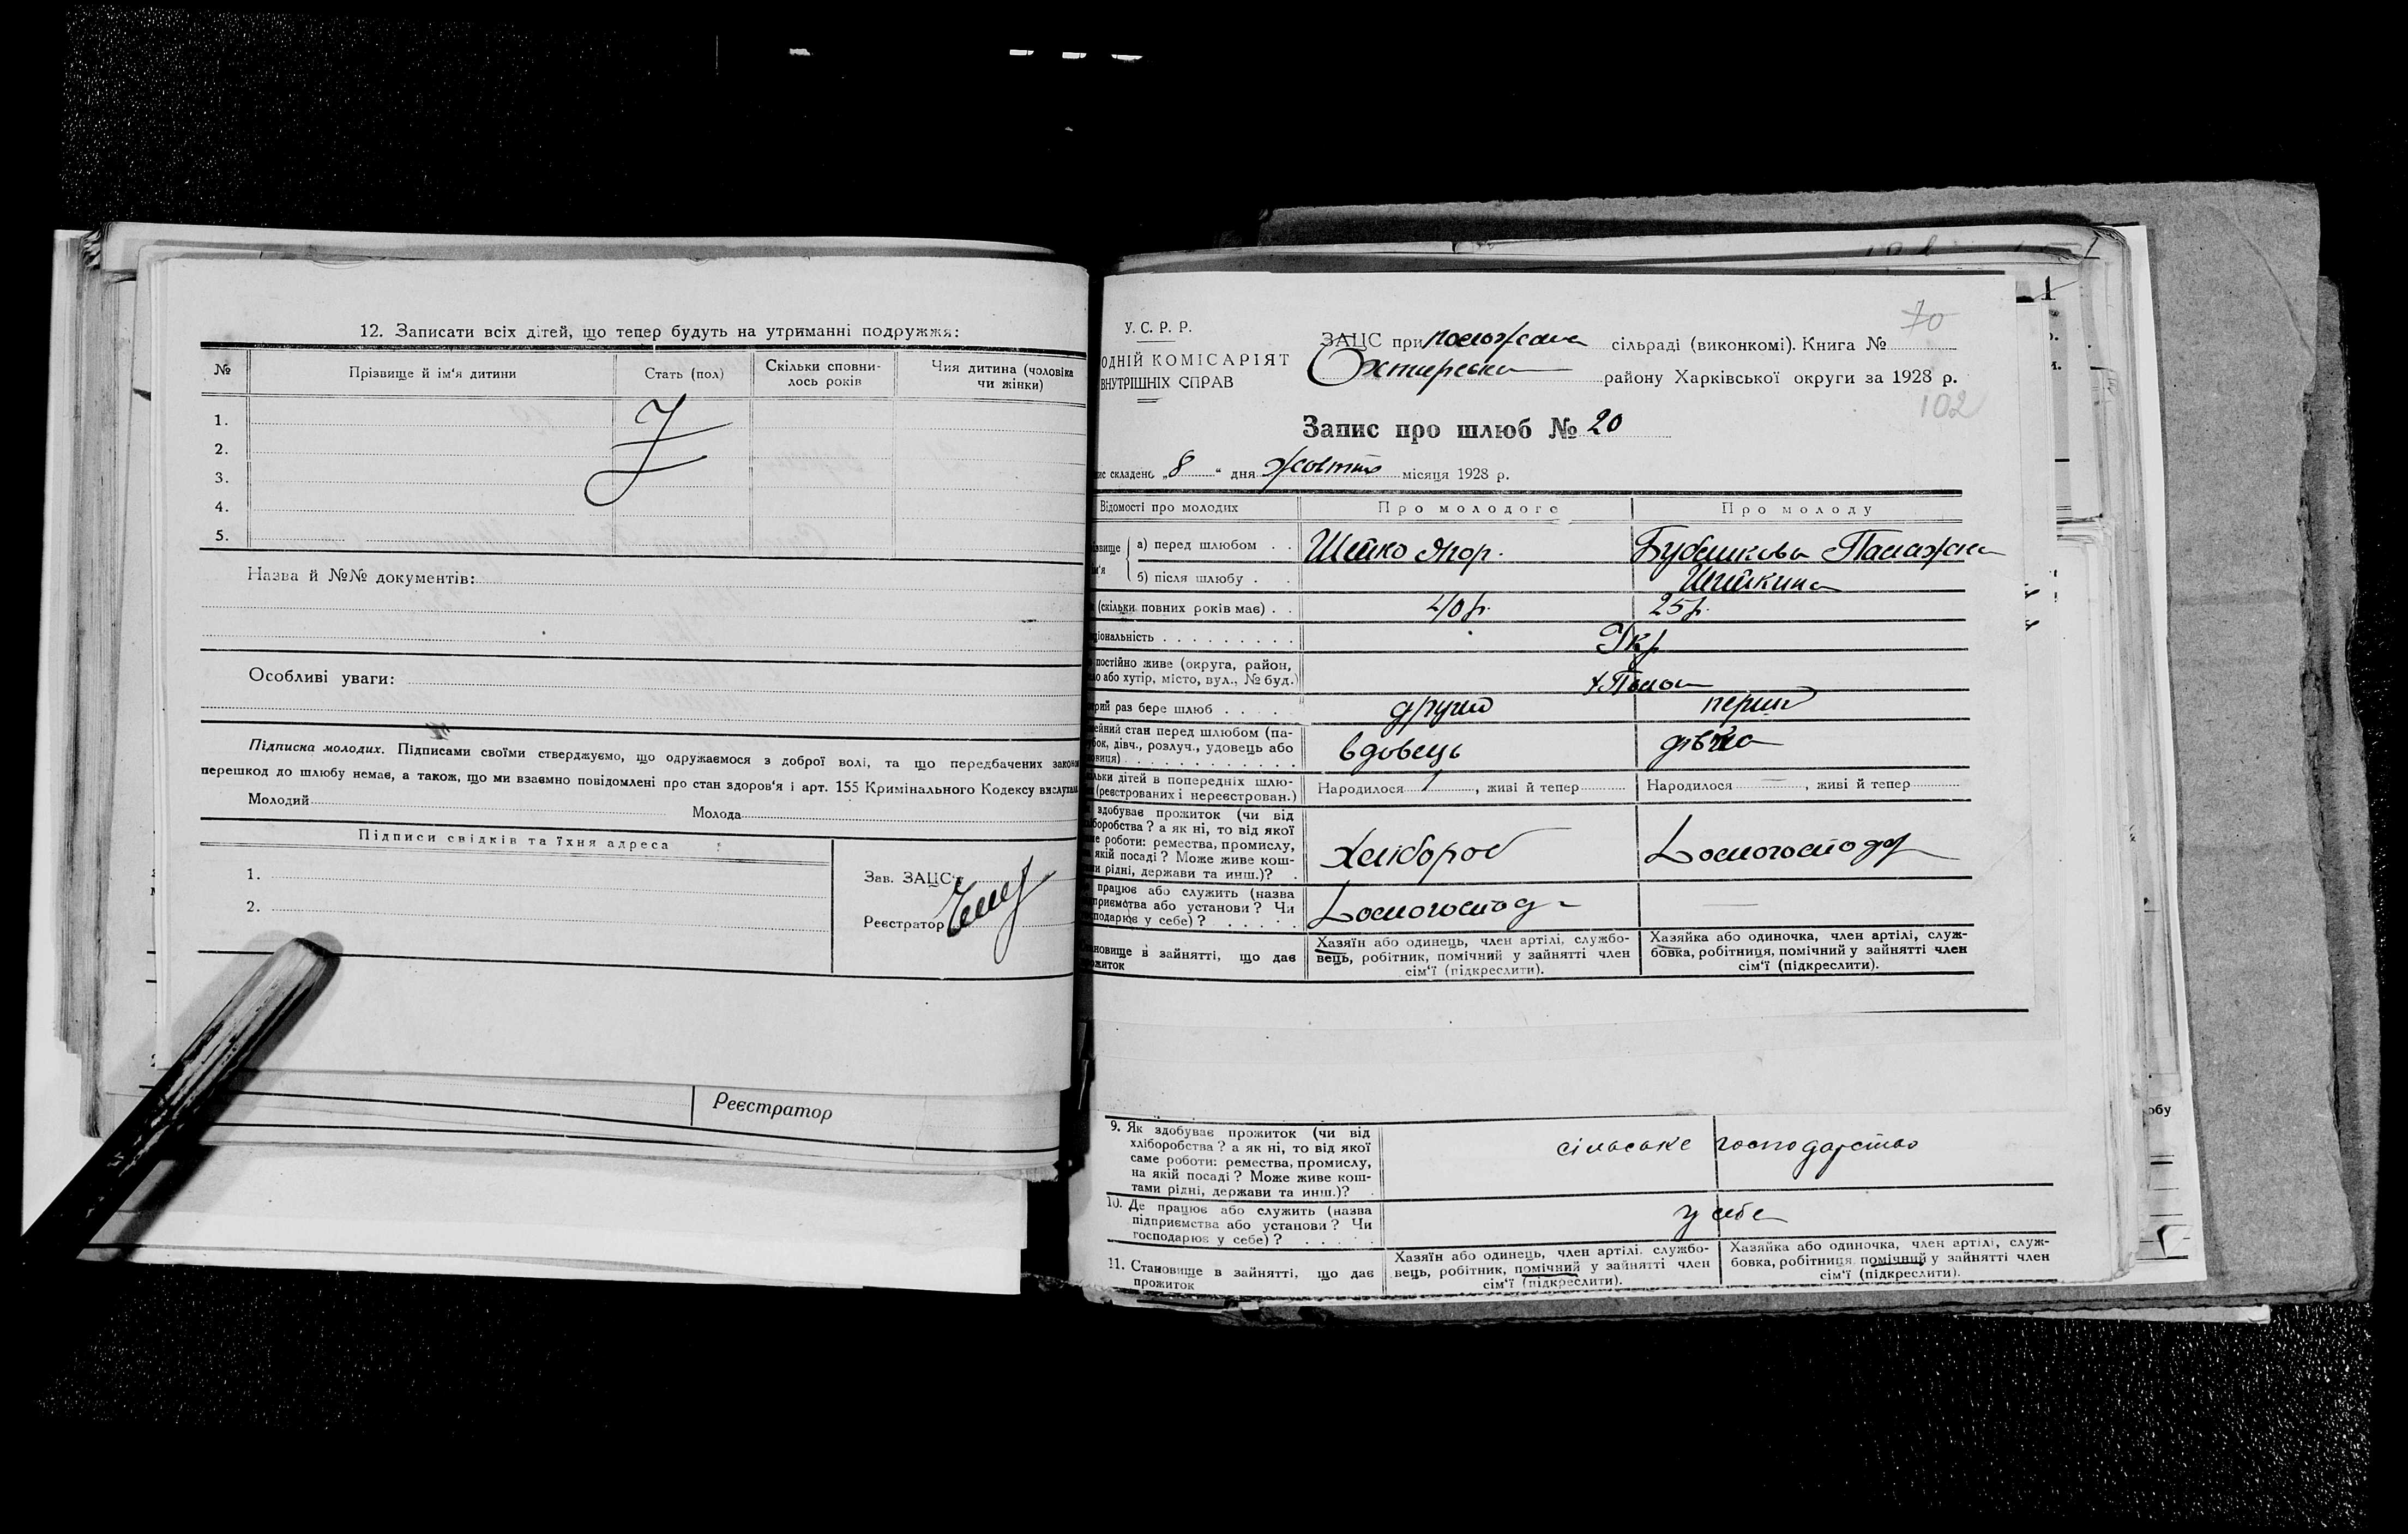 12. Записати всіх дітей, що тепер будуть на утриманні подружжя:
№ Прізвище й ім'я дитини Стать (пол) Скільки сповни-лось років Чия дитина (чоловіка чи жінки)
1.
2.
3.
4.
5.
Назва й №№ документів:
Особливі уваги:
Підписка молодих. Підписами своїми стверджуємо, що одружаємося з доброї волі, та що передбачених законом
перешкод до шлюбу немає, а також, що ми взаємно повідомлені про стан здоров'я і арт. 155 Кримінального Кодексу вислухали
Молодий Молода
Підписи свідків та їхня адреса
1.
2.
Зав. ЗАЦС
Реєстратор
Реєстратор
У. С. Р. Р.
ОДНІЙ КОМІСАРІЯТ
ВНУТРІШНІХ СПРАВ
70
ЗАЦС при сільраді (виконкомі). Книга №
району Харківської округи за 1928 р.
102
Запис про шлюб № 20
ис складено „8" дня Жовтня місяця 1928 р.
Відомості про молодих Про молодого Про молоду
а) перед шлюбом . . Шейко Ягор. Бубликова Палажка
б) після шлюбу . . Шейкина
(скільки повних років має) . . 40 р. 25 р.
ціональність . . . . . . . . . Укр
постійно живе (округа, район,
ло або хутір, місто, вул., № буд.)
рий раз бере шлюб . . . . . другий перший
ейний стан перед шлюбом (па-
бок, дівч., розлуч., удовець або
овиця) . . . . . . . . . . . . вдовець дівка
льки дітей в попередніх шлю-
(реєстрованих і нереєстрован.) Народилося 1, живі й тепер Народилося —, живі й тепер
здобуває прожиток (чи від
іборобства? а як ні, то від якої
ме роботи: ремества, промислу,
якій посаді? Може живе кош-
ми рідні, держави та инш.)? . Хлібороб
працює або служить (назва
приємства або установи? Чи
сподарює у себе)? . . . . . —
ановище в зайнятті, що дає
ожиток
Хазяїн або одинець, член артілі, службо-
вець, робітник, помічний у зайнятті член
сім'ї (підкреслити).
Хазяйка або одиночка, член артілі, служ-
бовка, робітниця, помічний у зайнятті член
сім'ї (підкреслити).
9. Як здобуває прожиток (чи від
хліборобства? а як ні, то від якої
саме роботи: ремества, промислу,
на якій посаді? Може живе кош-
тами рідні, держави та инш.)? сільське господарство
10. Де працює або служить (назва
підприємства або установи? Чи
господарює у себе)? . . . . . у себе
11. Становище в зайнятті, що дає
прожиток
Хазяїн або одинець, член артілі, службо-
вець, робітник, помічний у зайнятті член
сім'ї (підкреслити).
Хазяйка або одиночка, член артілі, служ-
бовка, робітниця, помічний у зайнятті член
сім'ї (підкреслити).
1
обу